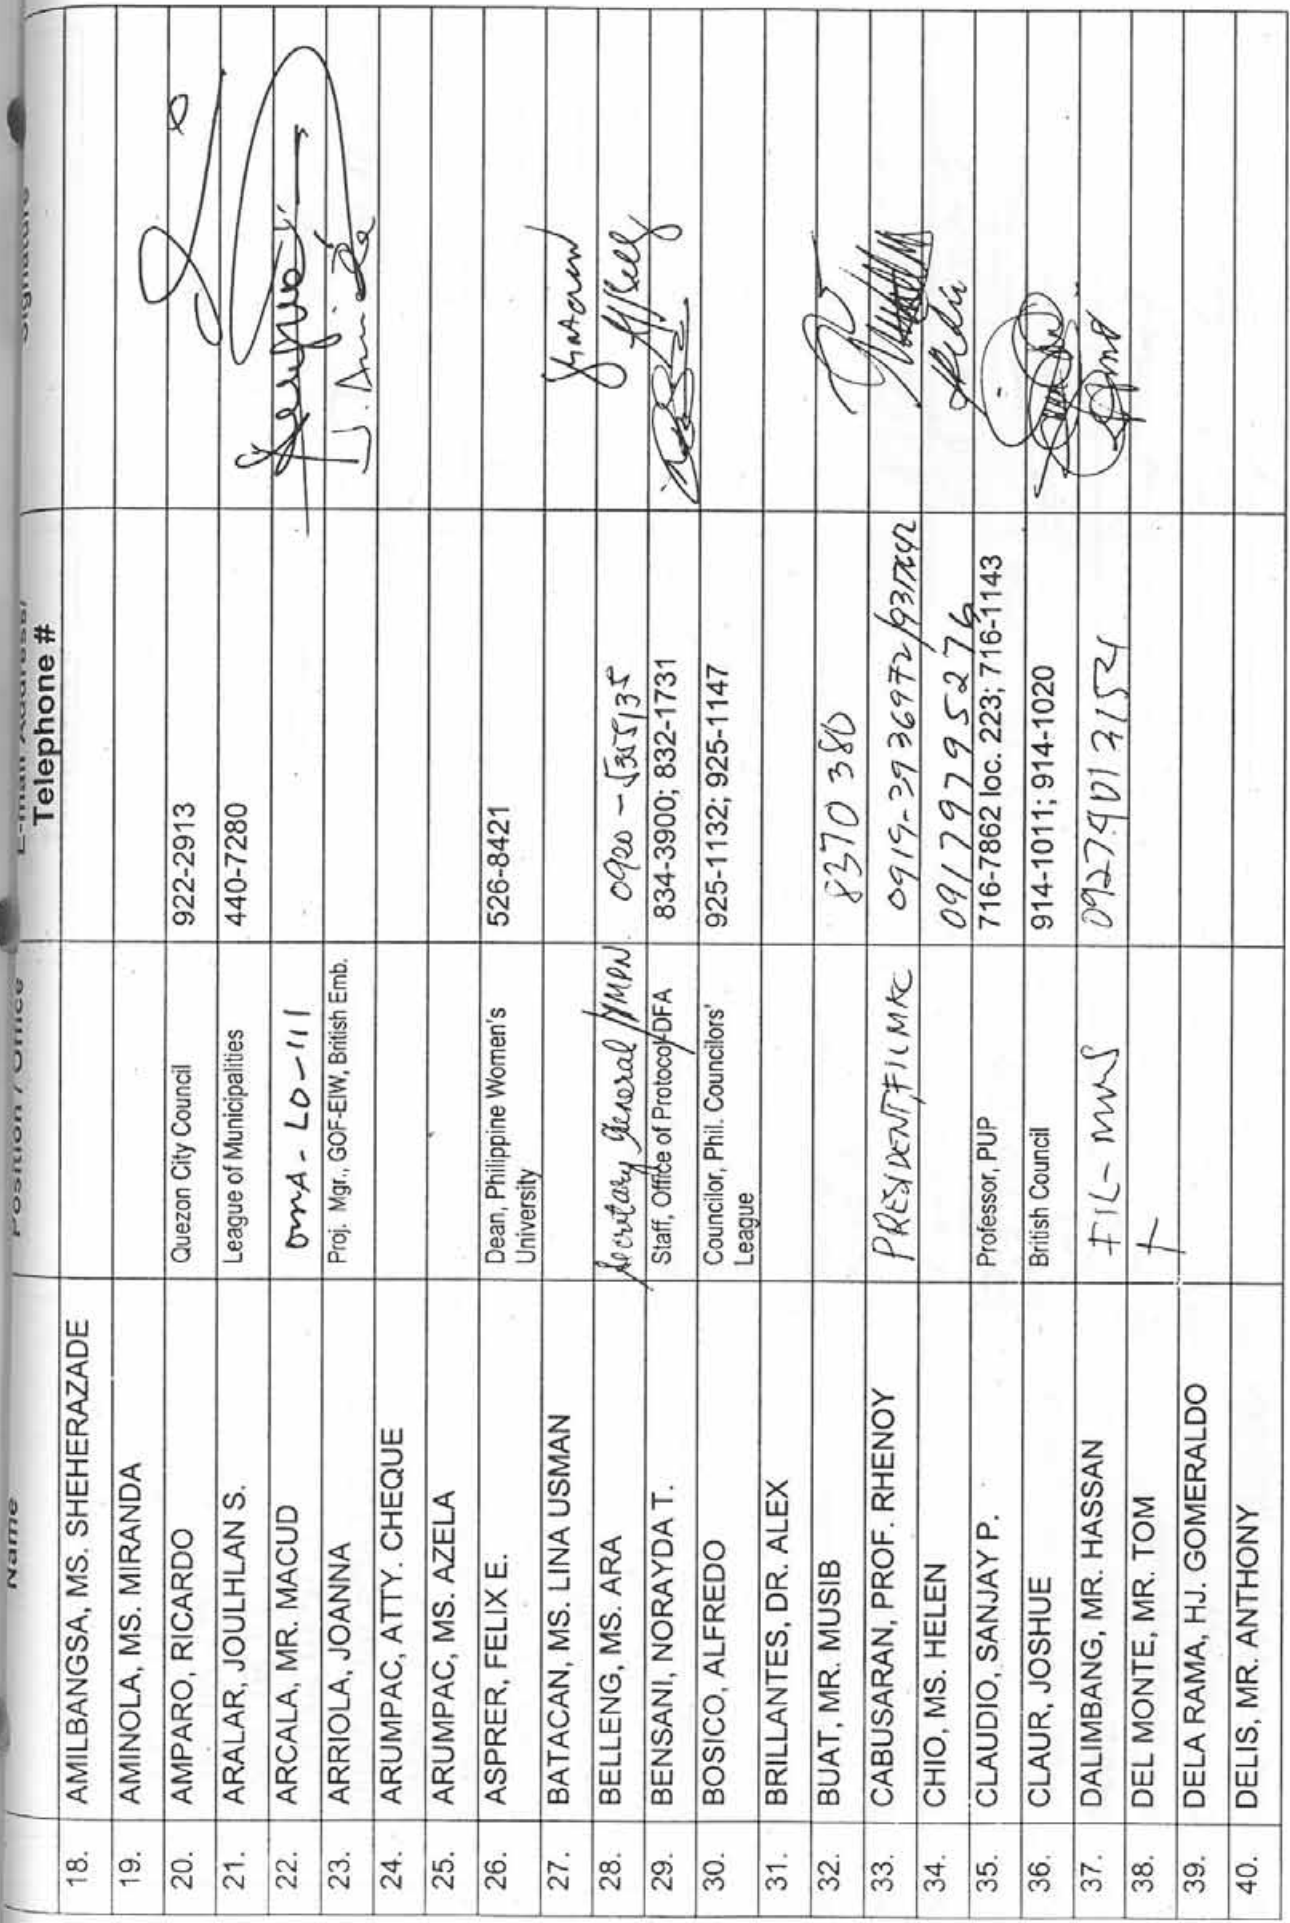 Name Position / Office E-mail Address/ Signature
Telephone #
18. AMILBANGSA, MS. SHEHERAZADE
19. AMINOLA, MS. MIRANDA
20. AMPARO, RICARDO Quezon City Council 922-2913
21. ARALAR, JOULHLAN S. League of Municipalities 440-7280
22. ARCALA, MR. MACUD OMA - LO - III
23. ARRIOLA, JOANNA Proj. Mgr., GOF-EIW, British Emb.
24. ARUMPAC, ATTY. CHEQUE
25. ARUMPAC, MS. AZELA
26. ASPRER, FELIX E. Dean, Philippine Women's 526-8421
University
27. BATACAN, MS. LINA USMAN
28. BELLENG, MS. ARA Secretary General /YMPN
29. BENSANI, NORAYDA T. Staff, Office of Protocol-DFA 834-3900; 832-1731
30. BOSICO, ALFREDO Councilor, Phil. Councilors' 925-1132; 925-1147
League
31. BRILLANTES, DR. ALEX
32. BUAT, MR. MUSIB 8370380
33. CABUSARAN, PROF. RHENOY PRESIDENT, FILMKC 0919-3936972
34. CHIO, MS. HELEN 09179795276
35. CLAUDIO, SANJAY P. Professor, PUP 716-7862 loc. 223; 716-1143
36. CLAUR, JOSHUE British Council 914-1011; 914-1020
37. DALIMBANG, MR. HASSAN FIL-
38. DEL MONTE, MR. TOM
39. DELA RAMA, HJ. GOMERALDO
40. DELIS, MR. ANTHONY